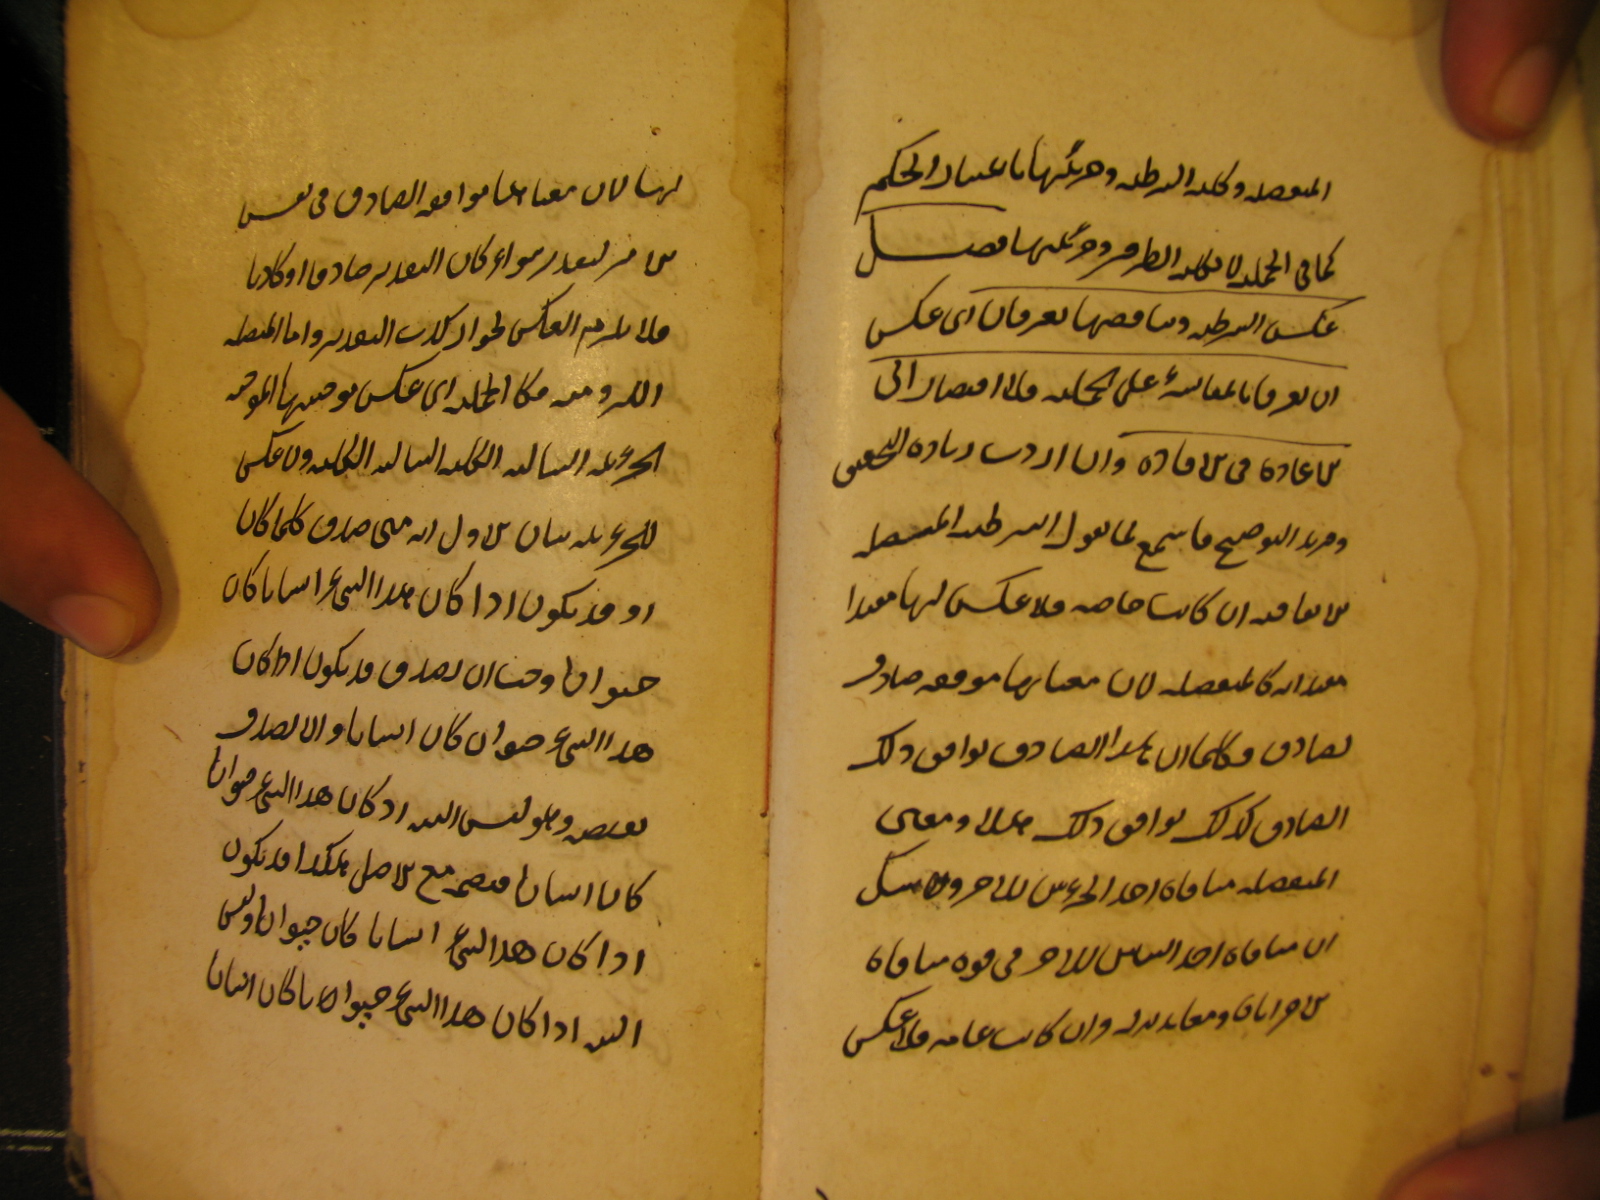 المنفصله وكليه الشرطيه وجزئيتها باعتبار الحكم
كما فى الحمليه لا بكليه الطرفين وجزئيتهما فصل
عكس الشرطيه وتناقضها يعرفان اى عكس
ان يعرفا بالمقايسة على الحمليه فلا افتصار الى
الاعادة فى الافادة وان اردت زيادة التحقيق
ومزيد التوضيح فاسمع لما نقول الشرطيه المتصله
الاتفاقيه ان كانت خاصه فلا عكس لها معتدا
معتدا به كالمنفصله لان معناها موافقه صادق
لصادق وكما ان هذا الصادق يوافق ذلك
الصادق كذلك يوافق ذلك هذا ومعنى
المنفصله منافاة احد الجزءين للاخر ولا شك
ان منافاة احد الشيئين للاخر فى قوة منافاة
الاخر اياه ومعانديه وان كانت عامه فلا عكس
لها لان معناها موافقه الصادق فى نفس
الامر لتقدير سواء كان التقدير صادقا او كاذبا
فلا يلزم العكس لجواز كذب التقدير واما المتصله
اللزوميه فكالحمليه اى عكس موجبتها الموجبه
الجزئيه السالبه الكليه السالبه الكليه ولا عكس
للجزئيه بيان الاول انه متى صدق كلما كان
او قد يكون اذا كان هذا الشىء انسانا كان
حيوانا وجب ان يصدق قد يكون اذا كان
هذا الشىء حيوان كان انسانا والا لصدق
نقيضه وهو ليس البته اذ كان هذا الشىء حيوانا
كان انسانا فنضمه مع الاصل هكذا قد يكون
اذا كان هذا الشىء انسانا كان حيوانا وليس
البته اذا كان هذا الشىء حيوانا كان انسانا